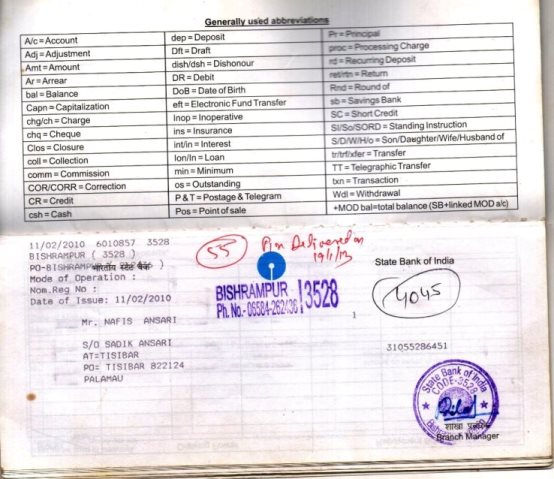 Generally used abbreviations
A/c = Account
Adj = Adjustment
Amt = Amount
Ar = Arrear
bal = Balance
Capn = Capitalization
chg/ch = Charge
chq = Cheque
Clos = Closure
coll = Collection
comm = Commission
COR/CORR = Correction
CR = Credit
csh = Cash
dep = Deposit
Dft = Draft
dish/dsh = Dishonour
DR = Debit
DoB = Date of Birth
eft = Electronic Fund Transfer
Inop = Inoperative
ins = Insurance
int/in = Interest
lon/ln = Loan
min = Minimum
os = Outstanding
P & T = Postage & Telegram
Pos = Point of sale
Pr = Principal
proc = Processing Charge
rd = Recurring Deposit
ret/rtn = Return
Rnd = Round of
sb = Savings Bank
SC = Short Credit
SI/So/SORD = Standing Instruction
S/D/W/H/o = Son/Daughter/Wife/Husband of
tr/trf/xfer = Transfer
TT = Telegraphic Transfer
txn = Transaction
Wdl = Withdrawal
+MOD bal=total balance (SB+linked MOD a/c)
11/02/2010 6010857 3528
BISHRAMPUR ( 3528 )
PO-BISHRAMPUR भारतीय स्टेट बैंक )
Mode of Operation :
Nom.Reg No :
Date of Issue: 11/02/2010
Mr. NAFIS ANSARI
S/O SADIK ANSARI
AT=TISIBAR
PO= TISIBAR 822124
PALAMAU
55
Pin Delivered on
19/1/13
BISHRAMPUR
Ph. No.- 06584-262436
3528
1
State Bank of India
4045
31055286451
State Bank of India
CODE-3528
शाखा प्रबंधक
Branch Manager